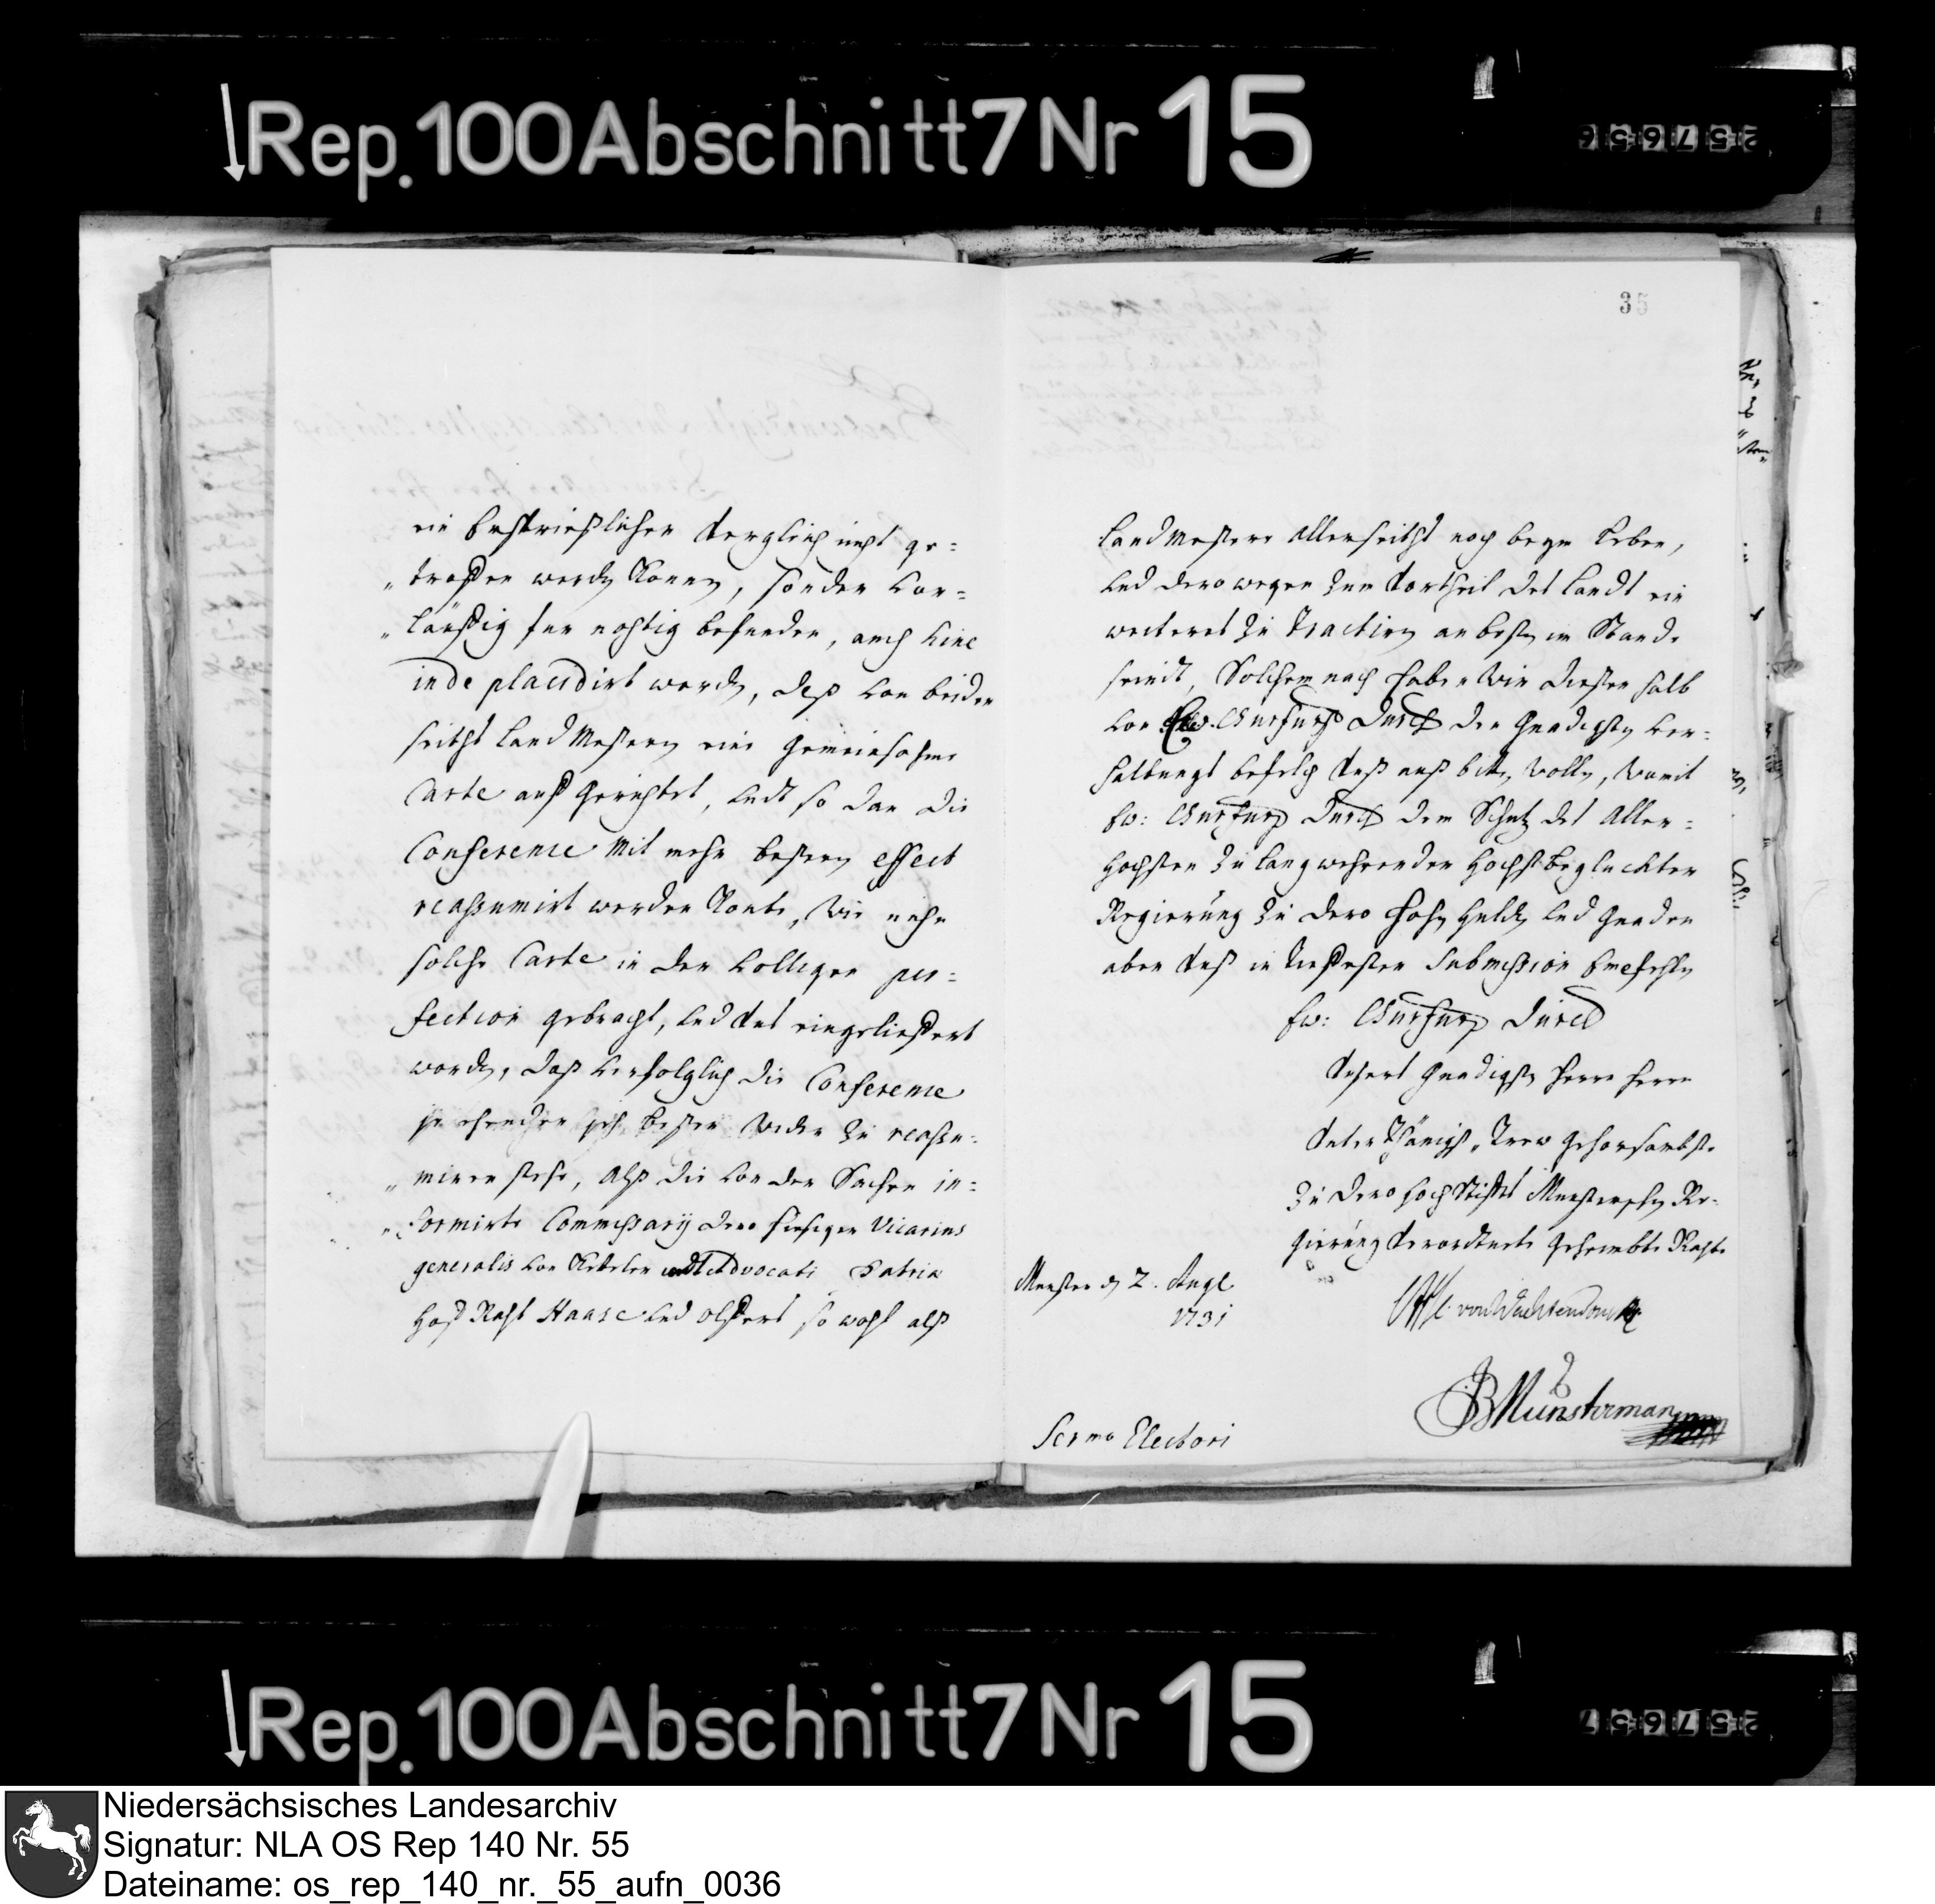 Rep. 100 Abschnitt 7 Nr 15
257656
35
ein ersprießlicher Verglich nicht ge=
„troffen werden konnen, sonder vor=
„läuffig fur nohtig befunden, auch hinc
inde placidirt worden, daß von beider
seiths Landmesteren eine gemeinsahme
Carte auffgerichtet, undt so dan die
Conference mit mehr besseren effect
reassumirt werden konte, Wie nuhn
solche Carte in der volligen per=
fection gebracht, und uns eingelieffert
worden, daß verfolglich die Conference
je ehender je besser wider zu reassu=
„miren stehe, alß die von der Sachen in=
„formirte Commissarij dero hiesiger Vicarius
generalis von Ketteler undt Advocati Patriæ
Hoff Raht Haase und Olffers so wohl alß
Landmestere allerseiths noch beym Leben,
und derowegen zum Vortheil des Landts ein
weiteres zu tractiren am besten im Stande
seindt, Solchem nach haben Wir diesen halb
von Ew. Churfürst Durchl der gnadigsten ver=
haltungs befelch unß auß bitten wollen, Womit
Ew: Churfürst Durchl dem Schutz des Aller=
hochsten zu langwehrender hochstbegluckter
Regierung zu dero hohen hulden und gnaden
aber unß in tieffesten Submission Empfehlen
Ew: Churfürst Durchl
Unsers gnadigsten Herrn Herrn
Unterthänigst, Trew gehorsambste
zu dero hochstiffts Munsterschen Re=
gierung verordtnete geheimbte Rähte
Munster den 2. Aug.
1731
von Wachtendonck
JB Münsterman
Sermo Electori
Rep. 100 Abschnitt 7 Nr 15
257657
Niedersächsisches Landesarchiv
Signatur: NLA OS Rep 140 Nr. 55
Dateiname: os_rep_140_nr._55_aufn_0036